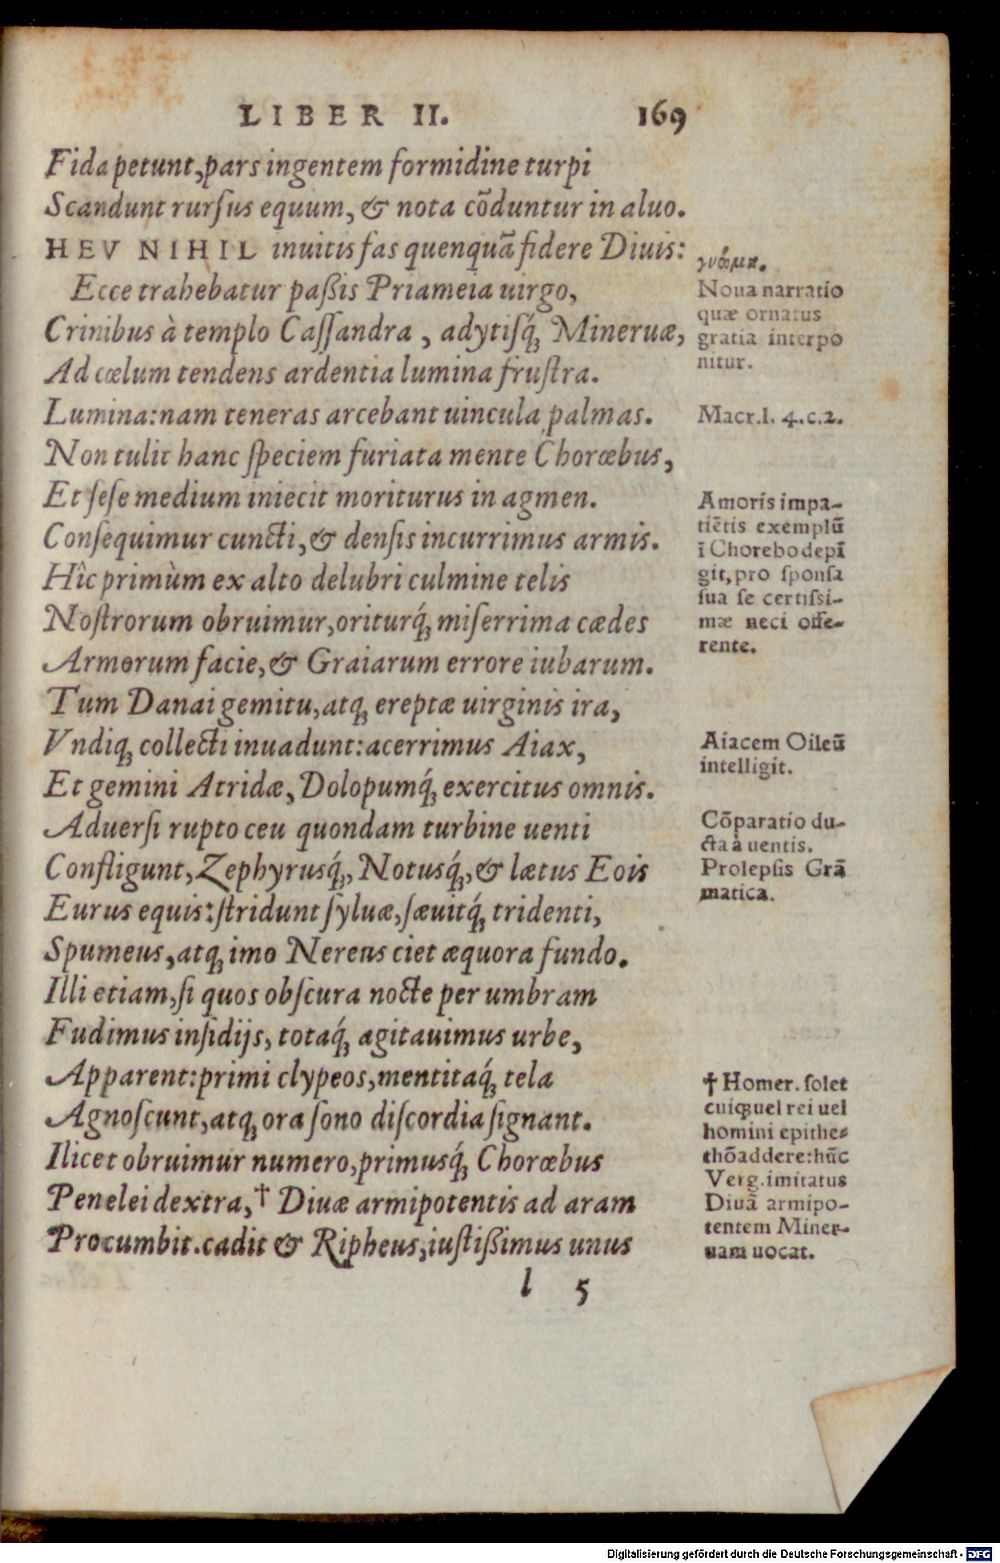 LIBER II. 169
Fida petunt, pars ingentem formidine turpi
Scandunt rursus equum, & nota cōduntur in aluo.
HEV NIHIL inuitis fas quenquā fidere Diuis:
γνώμη.
Ecce trahebatur paßis Priameia uirgo,
Crinibus à templo Cassandra, adytisq́; Mineruæ,
Ad cœlum tendens ardentia lumina frustra.
Noua narratio
quæ ornatus
gratia interpo
nitur.
Lumina: nam teneras arcebant uincula palmas.
Macr. l. 4. c. 2.
Non tulit hanc speciem furiata mente Chorœbus,
Et sese medium iniecit moriturus in agmen.
Consequimur cuncti, & densis incurrimus armis.
Hîc primùm ex alto delubri culmine telis
Nostrorum obruimur, oriturq́; miserrima cædes
Armorum facie, & Graiarum errore iubarum.
Amoris impa-
tiētis exemplū
ī Chorebo depī
git, pro sponsa
sua se certissi-
mæ neci offe-
rente.
Tum Danai gemitu, atq; ereptæ uirginis ira,
Vndiq; collecti inuadunt: acerrimus Aiax,
Et gemini Atridæ, Dolopumq́; exercitus omnis.
Aiacem Oileū
intelligit.
Aduersi rupto ceu quondam turbine uenti
Confligunt, Zephyrusq́;, Notusq́;, & lætus Eois
Eurus equis: stridunt syluæ, sæuitq́; tridenti,
Cōparatio du-
cta à uentis.
Prolepsis Grā
matica.
Spumeus, atq; imo Nereus ciet æquora fundo.
Illi etiam, si quos obscura nocte per umbram
Fudimus insidijs, totaq́; agitauimus urbe,
Apparent: primi clypeos, mentitaq́; tela
Agnoscunt, atq; ora sono discordia signant.
Ilicet obruimur numero, primusq́; Chorœbus
Penelei dextra, † Diuæ armipotentis ad aram
Procumbit. cadit & Ripheus, iustißimus unus
† Homer. solet
cuiq; uel rei uel
homini epithe-
thō addere: hūc
Verg. imitatus
Diuā armipo-
tentem Miner-
uam uocat.
l 5
Digitalisierung gefördert durch die Deutsche Forschungsgemeinschaft - DFG